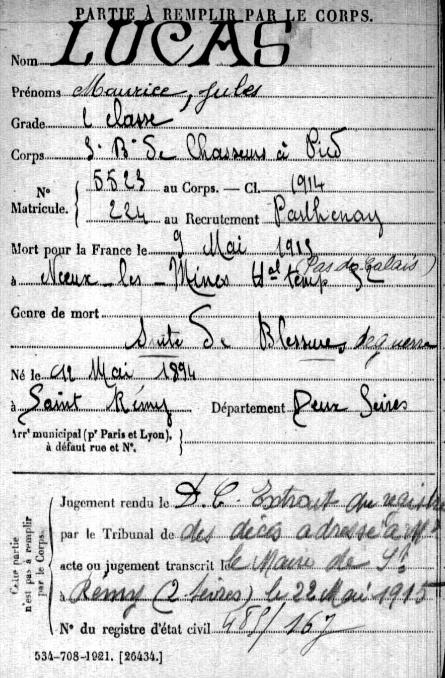 PARTIE À REMPLIR PAR LE CORPS.
Nom LUCAS
Prénoms Maurice, Jules
Grade 2 classe
Corps 3e Bn de Chasseurs à Pied
N° Matricule. { 5523 au Corps. — Cl. 1914
224 au Recrutement Parthenay
Mort pour la France le 9 Mai 1915
à Nœux-les-Mines Hal temp (Pas de Calais)
Genre de mort
Suite de Blessures de guerre
Né le 12 Mai 1894
à Saint Rémy Département Deux Sèvres
Arrt municipal (pr Paris et Lyon),
à défaut rue et N°.
Cette partie n'est pas à remplir par le Corps.
Jugement rendu le D.C. Extrait du registre
par le Tribunal de des décès adressé à Mr
acte ou jugement transcrit le le Maire de St
à Rémy (2 Sèvres) le 22 Mai 1915
N° du registre d'état civil 485/167
534-708-1921. [26434.]